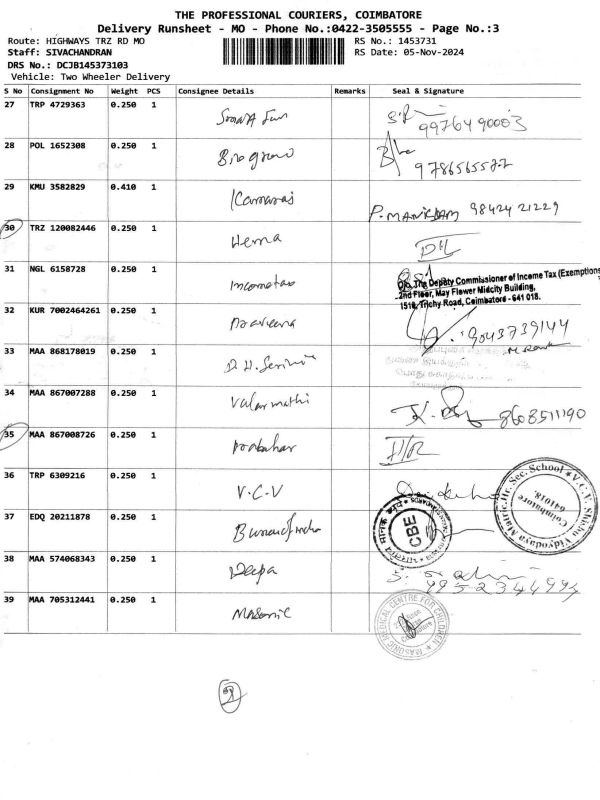 THE PROFESSIONAL COURIERS, COIMBATORE
Delivery Runsheet - MO - Phone No.:0422-3505555 - Page No.:3
Route: HIGHWAYS TRZ RD MO RS No.: 1453731
Staff: SIVACHANDRAN RS Date: 05-Nov-2024
DRS No.: DCJB145373103
Vehicle: Two Wheeler Delivery
S No Consignment No Weight PCS Consignee Details Remarks Seal & Signature
27 TRP 4729363 0.250 1
9976490003
28 POL 1652308 0.250 1
9786565577
29 KMU 3582829 0.410 1 Kamaraj
P. MANIKDAM 98424 21229
30 TRZ 120082446 0.250 1 Hema
31 NGL 6158728 0.250 1 Incometax
O/o. The Deputy Commissioner of Income Tax (Exemptions
2nd Floor, May Flower Midcity Building,
1510, Trichy Road, Coimbatore - 641 018.
32 KUR 7002464261 0.250 1 Praveena
9043739144
33 MAA 868178019 0.250 1
34 MAA 867007288 0.250 1 Valarmathi
8608511190
35 MAA 867008726 0.250 1 Prabahar
36 TRP 6309216 0.250 1 V.C.V
V.C.V. Shishu Vidyodaya Matric.Hr.Sec.School
Coimbatore
641018.
37 EDQ 20211878 0.250 1
CBE
38 MAA 574068343 0.250 1 Deepa
9952344994
39 MAA 705312441 0.250 1 Masonic
MASONIC MEDICAL CENTRE FOR CHILDREN